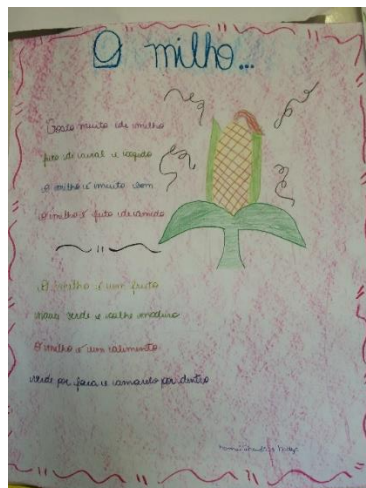 O milho...
Gosto muito de milho
feito de caracol e
O milho é muito bom
O milho é feito de amido
O milho é um fruto
verde e colhe maduro
O milho é um alimento
verde por fora e amarelo por dentro